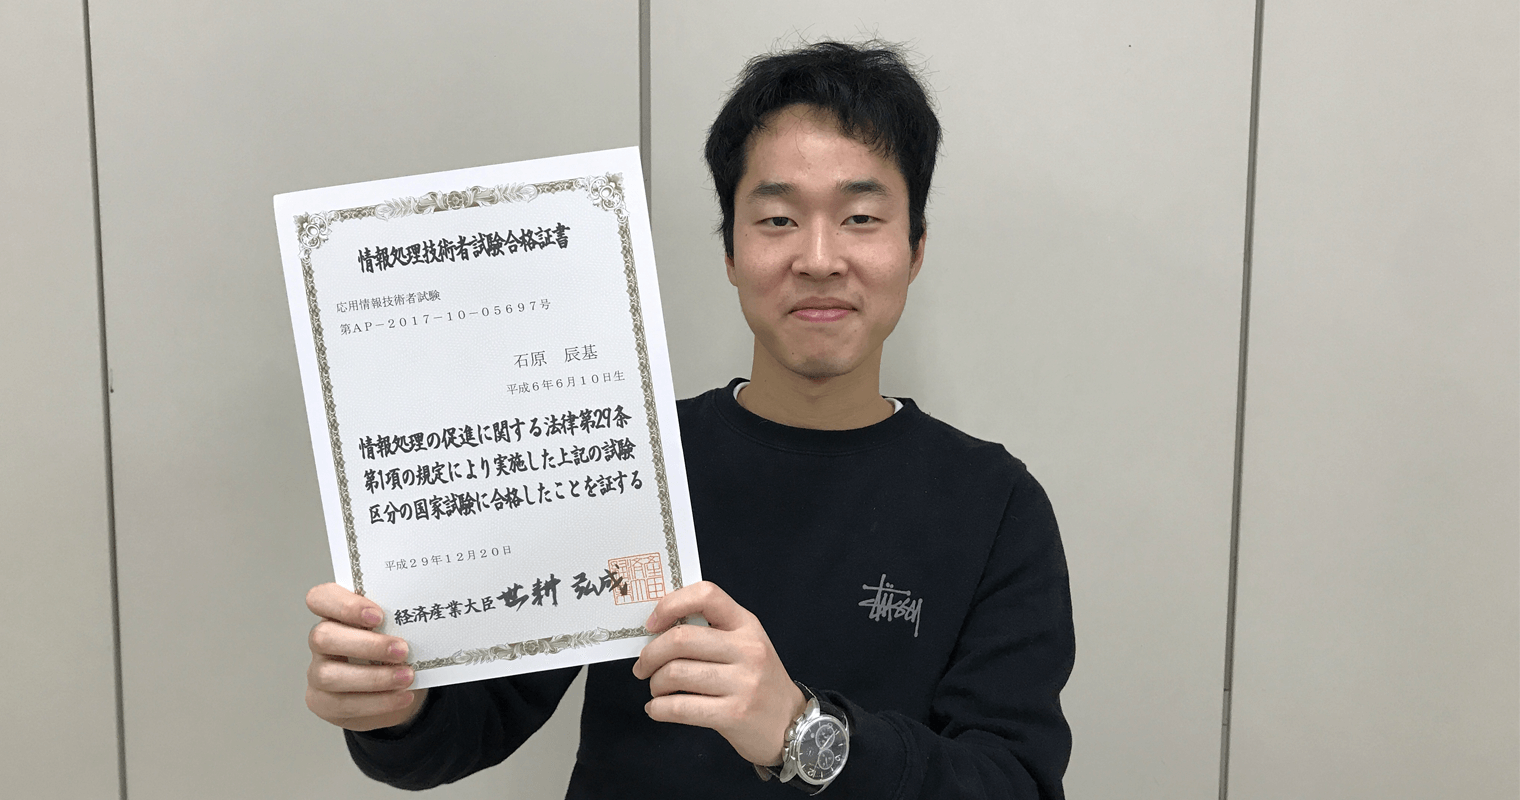 情報処理技術者試験合格証書
応用情報技術者試験
第AP－２０１７－１０－０５６９７号
石原　辰基
平成６年６月１０日生
情報処理の促進に関する法律第29条
第1項の規定により実施した上記の試験
区分の国家試験に合格したことを証する
平成２９年１２月２０日
経済産業大臣 世耕 弘成
Stüssy